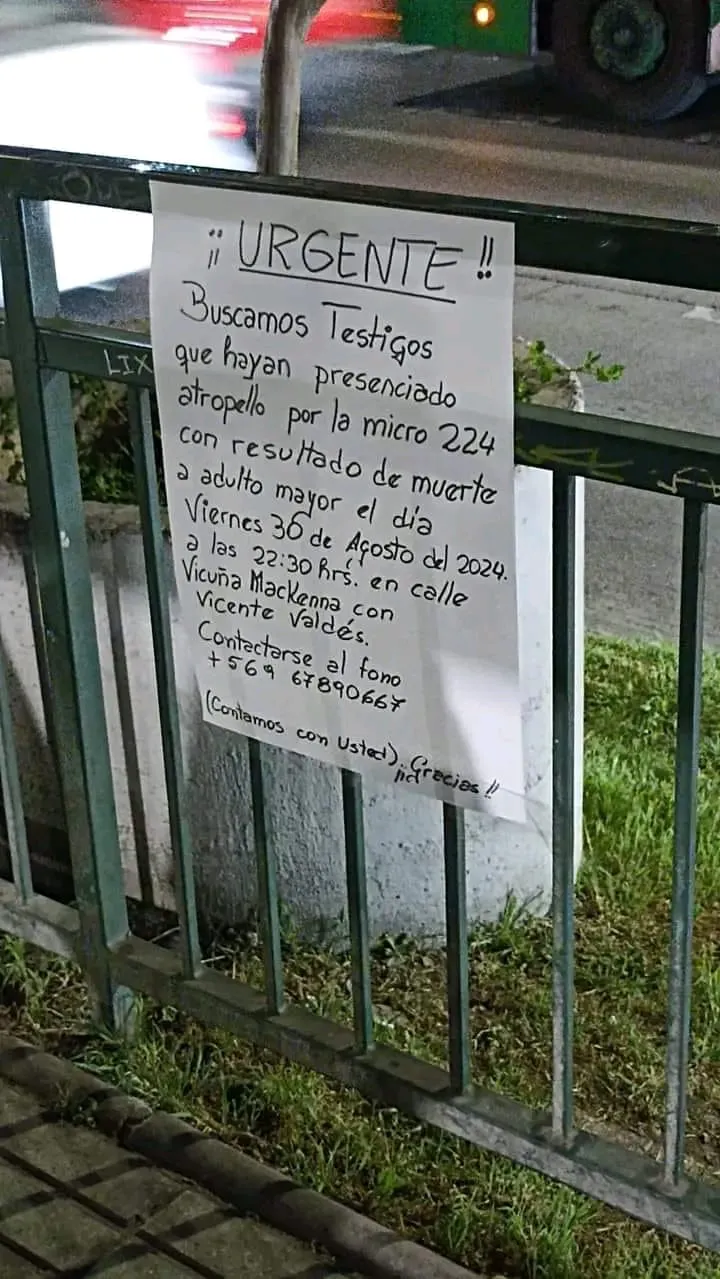 ¡¡ URGENTE !!
Buscamos Testigos
que hayan presenciado
atropello por la micro 224
con resultado de muerte
a adulto mayor el día
Viernes 30 de Agosto del 2024.
a las 22:30 hrs. en calle
Vicuña Mackenna con
Vicente Valdés.
Contactarse al fono
+569 67890667
(Contamos con Usted). Gracias!!
LIX